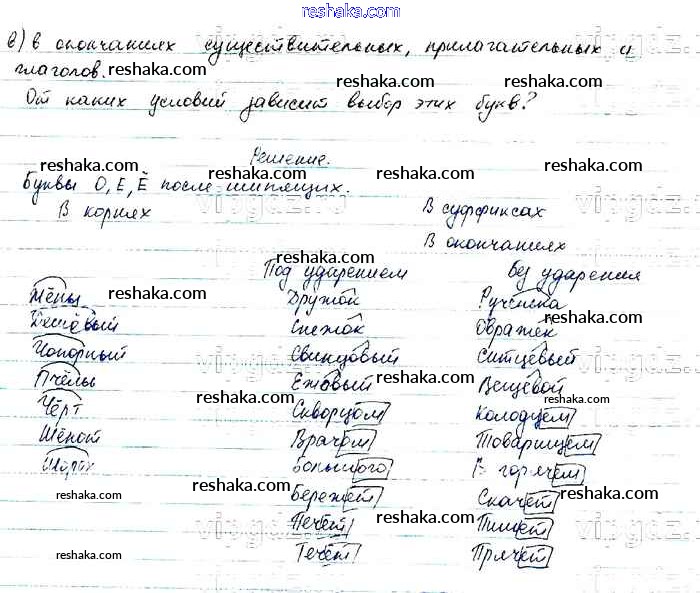 reshaka.com
в) в окончаниях существительных, прилагательных и
глаголов. reshaka.com reshaka.com reshaka.com
От каких условий зависит выбор этих букв?
Решение.
reshaka.com reshaka.com reshaka.com
Буквы О, Е, Ё после шипящих.
В корнях reshaka.com В суффиксах reshaka.com
В окончаниях
Под ударением Без ударения
reshaka.com reshaka.com
Дружок Рученька
Дешёвый Снежок Овражек
reshaka.com reshaka.com
Чопорный Свинцовый Ситцевый
Пчёлы Ежовый Вещевой
reshaka.com reshaka.com
Чёрт Скворцом Колодцем
reshaka.com
Шёпот Врачом Товарищем
reshaka.com reshaka.com
Большого В горячем
reshaka.com reshaka.com
Бережёт Скачет
reshaka.com
Печёт Пишет
reshaka.com reshaka.com
Течёт Прячет
reshaka.com